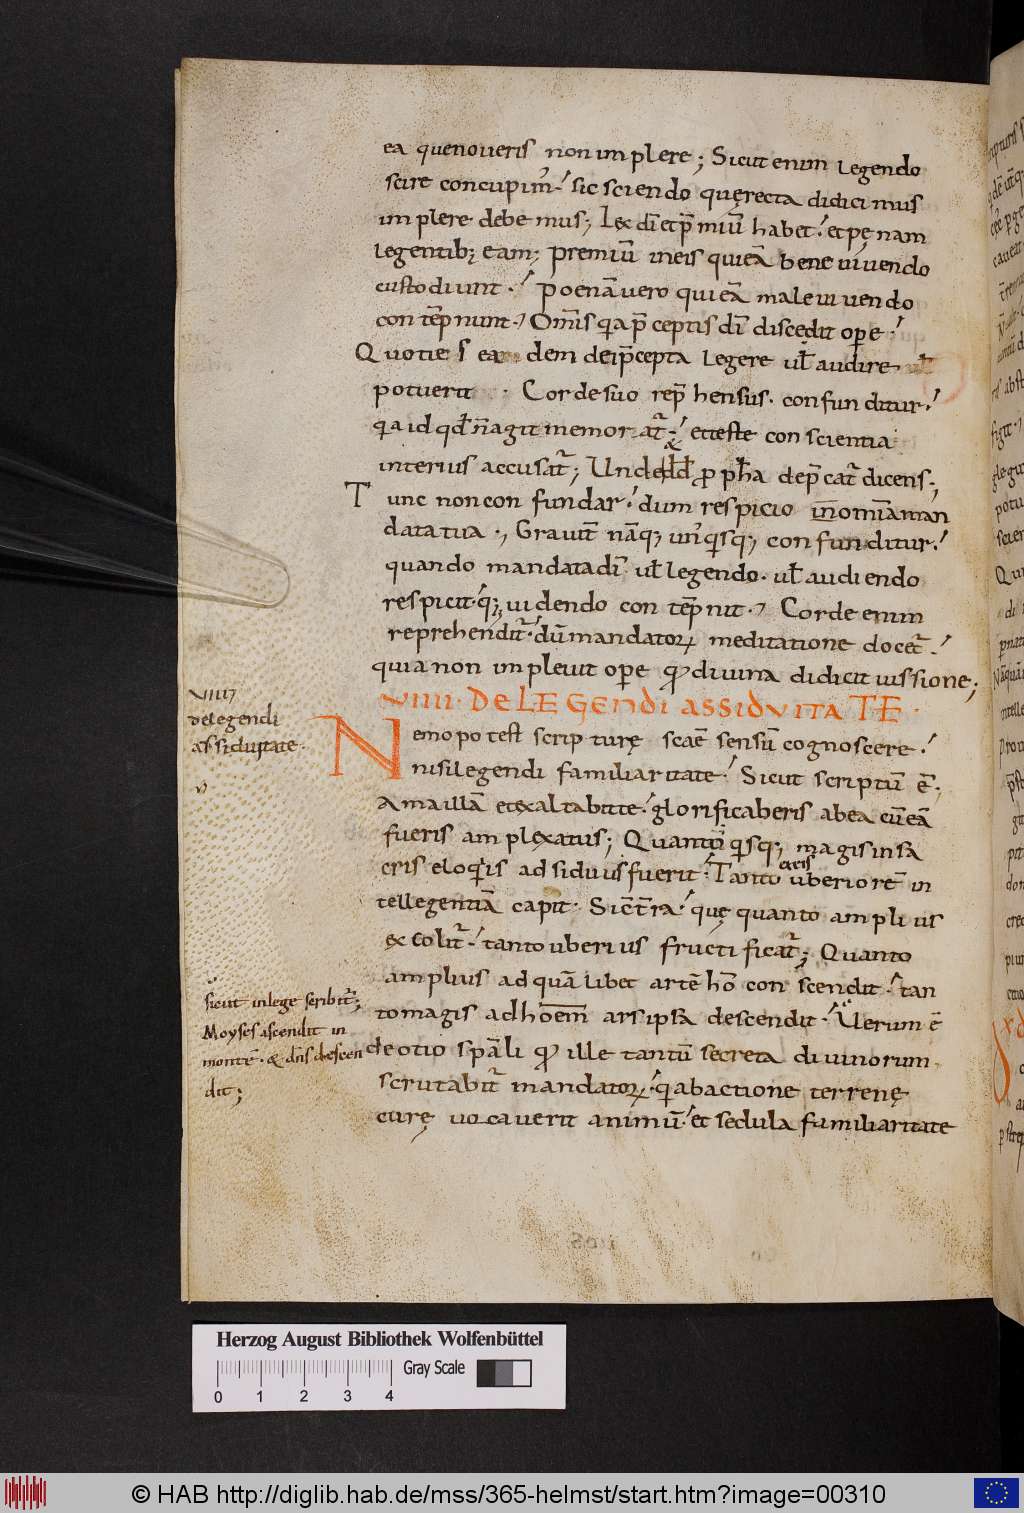 ea quenoueris non implere; Sicut enim legendo
scire concupim᷒; sic sciendo quęrecta didicimus
implere debemus; Lex dī et p̄miū habet; et pęnam
legentib; eam; premiū ineis quieā bene uiuendo
custodiunt; poenā uero qui eā male uiuendo
contēpnunt; Om̄is qꝛ a p̄ceptis dī discedit oꝑe;
Quotiens ea dem deip̄cepta legere ul̄ audire
potuerit . Cordesuo rep̄hensus. confunditur;
qa id qd̄ n̄ agit memorat᷑; et teste conscientia
interius accusat᷑; Unde & dd̄ ꝓph̄a dep̄cat᷑ dicens;
Tunc non confundar; dum respicio in omīa man
data tua; Grauit̄ nāq; un᷒qisq; confunditur;
quando mandata dī ul̄ legendo. ul̄ audiendo
respicit. q; uidendo contēpnit; Corde enim
reprehendit᷑; dū mandatoꝝ meditatione docet᷑;
quia non impleuit oꝑe qđ diuina didicit iussione;
VIIII. DE LEGENDI ASSIDVITATE.
Nemo potest scripturę scāe sensū cognoscere;
nisi legendi familiaritate; Sicut scriptū ē;
Ama illā et exaltabit te; glorificaberis abea cū eā
fueris amplexatus; Quanto qisq; magis in sā
cris eloqiis adsiduus fuerit; Tanto ex eis uberiorē in
tellegentiā capit. Sic̄ t̄ra; quę quanto amplius
excolit᷑; tanto uberius fructificat᷑; Quanto
amplius ad quālibet artē hō conscendit; tan
tomagis ad hoēm ars ipsā descendit; Uerum ē
de otio spāli qđ ille tantū secreta diuinorum
scrutabit᷑ mandatoꝝ; q ab actione terrenę
curę uocauerit animū; et sedula familiaritate
VIIII
de legendi
assiduitate.
sicut in lege scribit᷑;
Moyses ascendit in
montē. & dn̄s descen
dit;
Herzog August Bibliothek Wolfenbüttel
Gray Scale
0 1 2 3 4
© HAB http://diglib.hab.de/mss/365-helmst/start.htm?image=00310